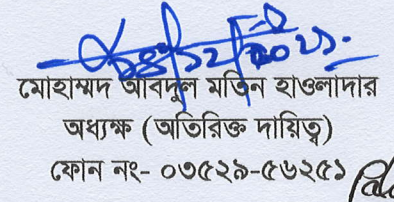 ২৪/১২/২০২১
মোহাম্মদ আবদুল মতিন হাওলাদার
অধ্যক্ষ (অতিরিক্ত দায়িত্ব)
ফোন নং- ০৩৫২৯-৫৬২৫১